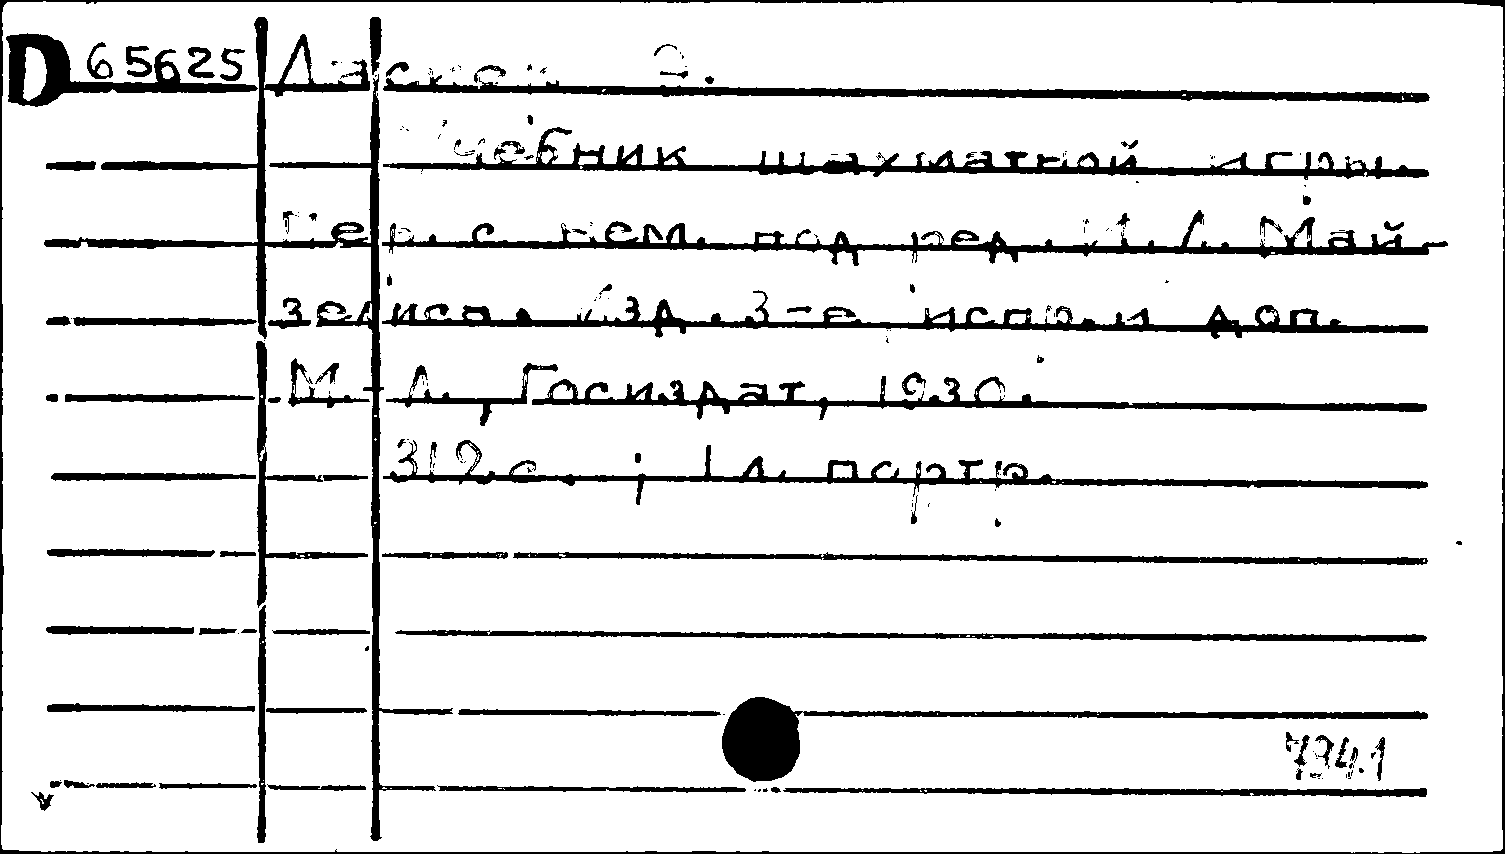 D 65625 Ласкер Э.
Учебник шахматной игры.
Пер. с нем. под ред. И. Л. Май-
зелиса. Изд. 3-е испр. и доп.
М.-Л., Госиздат, 1930.
312 с. ; 1 л. портр.
794.1